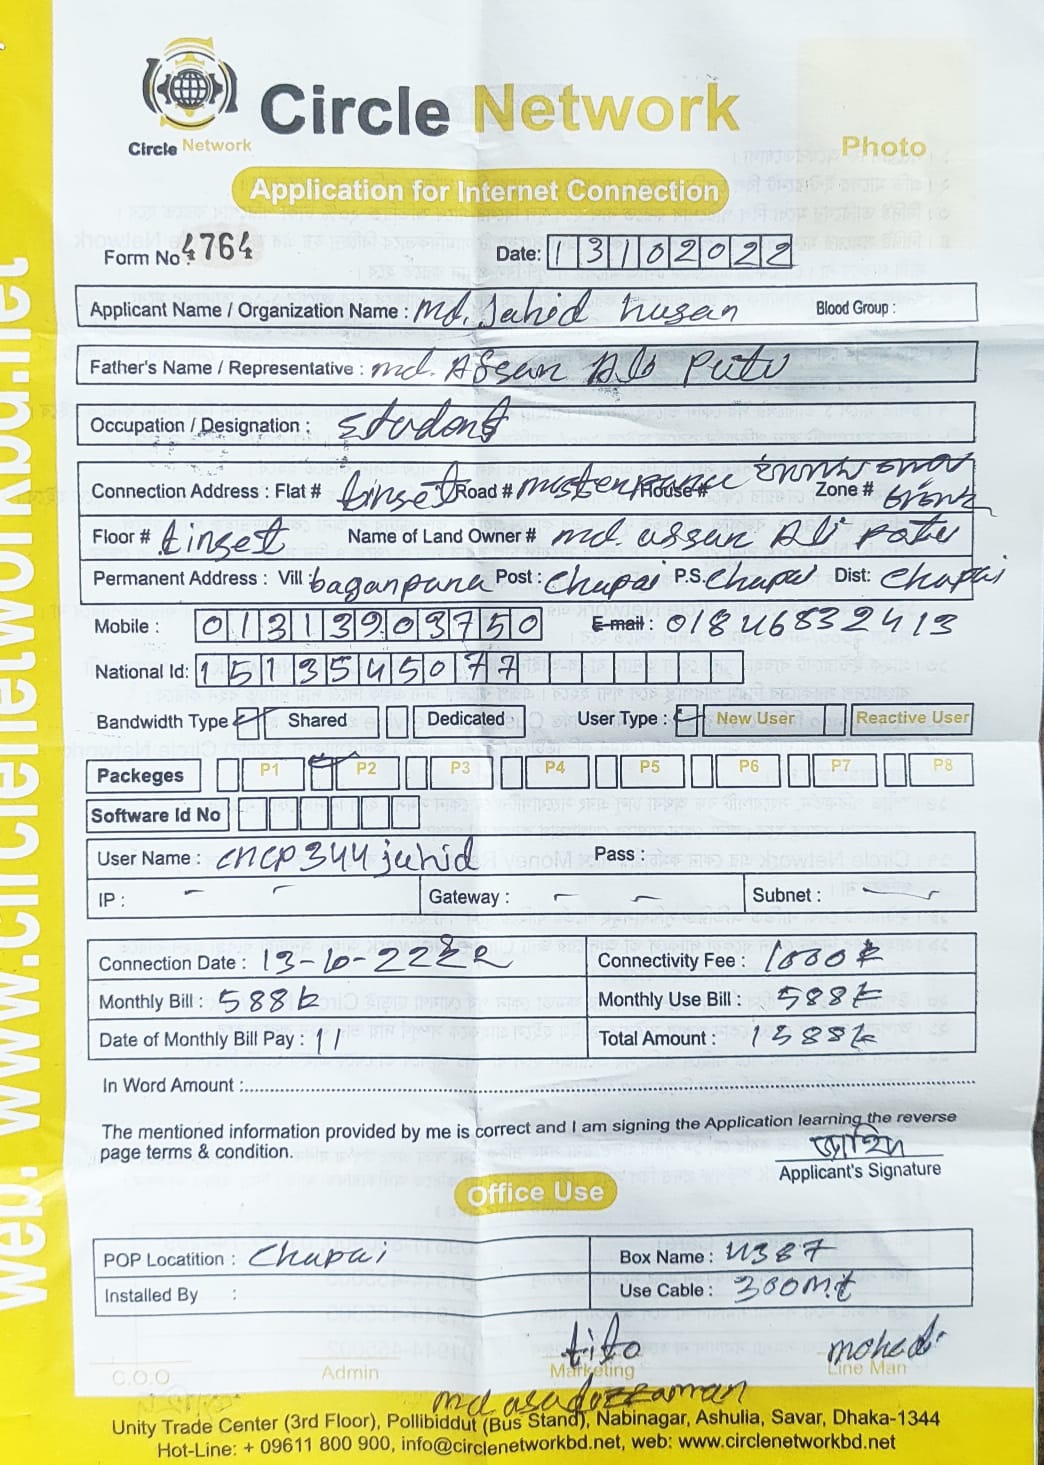 Circle Network
Circle Network
Photo
Application for Internet Connection
Form No : 4764
Date: 13102022
Applicant Name / Organization Name : md. Jahid husan Blood Group :
Father's Name / Representative : md. Afsan Ali Putu
Occupation / Designation : Student
Connection Address : Flat # tinset Road # House # Zone #
Floor # tinset Name of Land Owner # md. assan Ali Patu
Permanent Address : Vill baganpana Post : Chapai P.S. Chapai Dist: Chapai
Mobile : 01313903750 E-mail : 01846832413
National Id: 1513545077
Bandwidth Type Shared Dedicated User Type : New User Reactive User
Packeges P1 P2 P3 P4 P5 P6 P7 P8
Software Id No
User Name : cncp344jahid Pass :
IP : - - Gateway : - - Subnet : - -
Connection Date : 13-10-22 Connectivity Fee : 1000 t
Monthly Bill : 588 t Monthly Use Bill : 588 t
Date of Monthly Bill Pay : 11 Total Amount : 1588 t
In Word Amount :
The mentioned information provided by me is correct and I am signing the Application learning the reverse
page terms & condition.
জাহিদ
Applicant's Signature
Office Use
POP Locatition : Chapai Box Name : U387
Installed By : Use Cable : 300mt
tito mohedi
C.O.O Admin Marketing Line Man
md asadozzaman
Unity Trade Center (3rd Floor), Pollibiddut (Bus Stand), Nabinagar, Ashulia, Savar, Dhaka-1344
Hot-Line: + 09611 800 900, info@circlenetworkbd.net, web: www.circlenetworkbd.net
web: www.circlenetworkbd.net